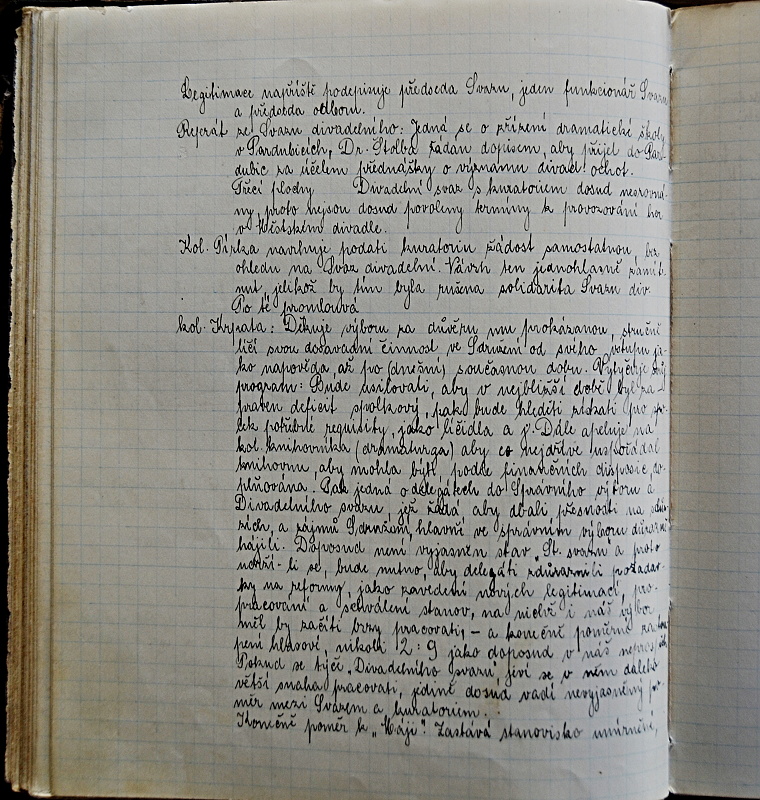 Legitimace napříště podepisuje předseda Svazu, jeden funkcionář Svazu
a předseda odboru.
Referát ze Svazu divadelního: Jedná se o zřízení dramatické školy
v Pardubicích, Dr. Štolba žádán dopisem, aby přijel do Par-
dubic za účelem přednášky o významu divad. ochot.
Třecí plochy Divadelní svaz s kuratoriem dosud nesrovná-
ny, proto nejsou dosud povoleny termíny k provozování her
v Městském divadle.
Kol. Pirka navrhuje podati kuratoriu žádost samostatnou, bez
ohledu na Svaz divadelní. Návrh ten jednohlasně zamít-
nut, jelikož by tím byla rušena solidarita Svazu div.
Po té promlouvá
kol. Krpata: Děkuje výboru za důvěru mu prokázanou, stručně
líčí svou dosavadní činnost ve Sdružení od svého vstupu ja-
ko napověda, až po (dnešní) současnou dobu. Vytyčuje svůj
program: Bude usilovati, aby v nejbližší době byl za-
praven deficit spolkový, pak bude hleděti získati pro spo-
lek potřebné requisity, jako líčidla a j. Dále apeluje na
kol. knihovníka (dramaturga) aby co nejdříve uspořádal
knihovnu, aby mohla býti, podle finančních disposic, do-
plňována. Pak jedná o delegátech do Správního výboru a
Divadelního svazu, jež žádá aby dbali přesnosti na schů-
zích, a zájmů Sdružení, hlavní ve správním výboru důrazně
hájili. Doposud není vyjasněn stav „St. svazu“ a proto
udrží-li se, bude nutno, aby delegáti zdůraznili požadav-
ky na reformy, jako zavedení nových legitimací, pro-
pracování a schválení stanov, na nichž i náš výbor
měl by začíti brzy pracovati, – a konečně poměrné zastou-
pení hlasové, nikoli 2:9 jako doposud v náš neprospěch.
Pokud se týče „Divadelního svazu“, jeví se v něm daleko
větší snaha pracovati, jedině dosud vadí nevyjasněný po-
měr mezi Svazem a kuratoriem.
Konečně poměr k „Máji“: Zastává stanovisko umírněné,